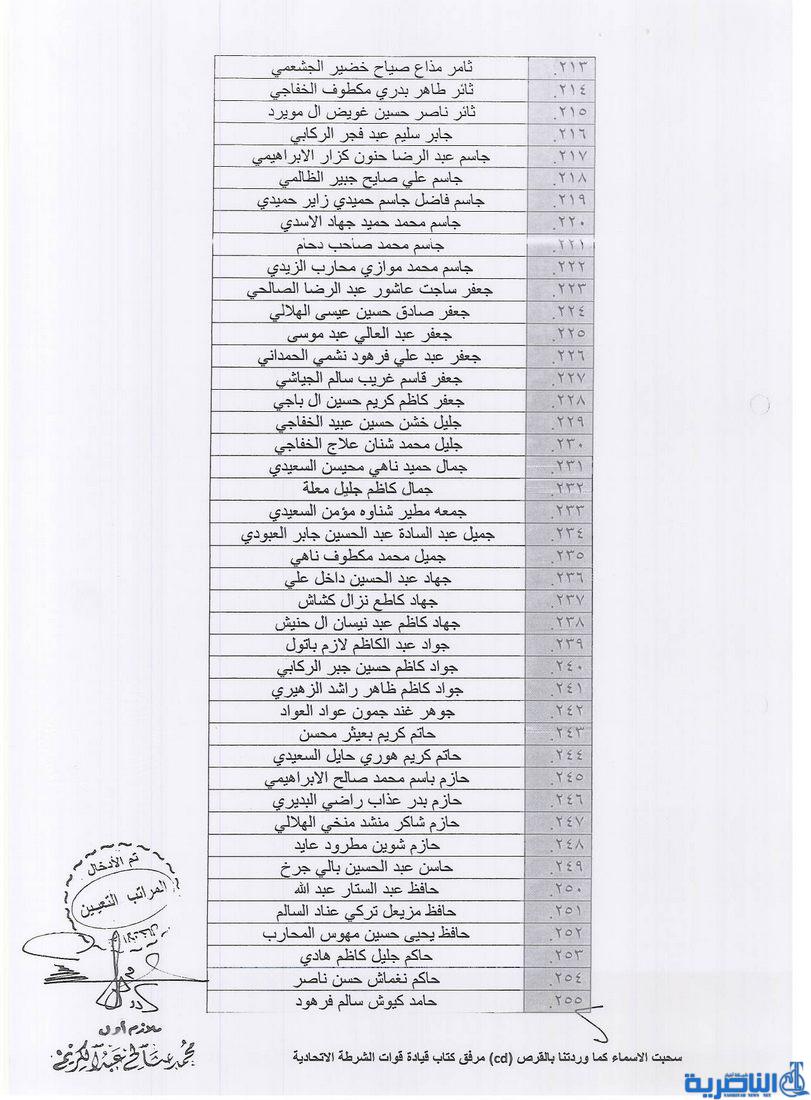 ٢١٣. ثامر مذاع صياح خضير الجشعمي
٢١٤. ثائر طاهر بدري مكطوف الخفاجي
٢١٥. ثائر ناصر حسين غويض ال مويرد
٢١٦. جابر سليم عبد فجر الركابي
٢١٧. جاسم عبد الرضا حنون كزار الابراهيمي
٢١٨. جاسم علي صايح جبير الظالمي
٢١٩. جاسم فاضل جاسم حميدي زاير حميدي
٢٢٠. جاسم محمد حميد جهاد الاسدي
٢٢١. جاسم محمد صاحب دحام
٢٢٢. جاسم محمد موازي محارب الزيدي
٢٢٣. جعفر ساجت عاشور عبد الرضا الصالحي
٢٢٤. جعفر صادق حسين عيسى الهلالي
٢٢٥. جعفر عبد العالي عبد موسى
٢٢٦. جعفر عبد علي فرهود نشمي الحمداني
٢٢٧. جعفر قاسم غريب سالم الجياشي
٢٢٨. جعفر كاظم كريم حسين ال باجي
٢٢٩. جليل خشن حسين عبيد الخفاجي
٢٣٠. جليل محمد شنان علاج الخفاجي
٢٣١. جمال حميد ناهي محيسن السعيدي
٢٣٢. جمال كاظم جليل معلة
٢٣٣. جمعه مطير شناوه مؤمن السعيدي
٢٣٤. جميل عبد السادة عبد الحسين جابر العبودي
٢٣٥. جميل محمد مكطوف ناهي
٢٣٦. جهاد عبد الحسين داخل علي
٢٣٧. جهاد كاطع نزال كشاش
٢٣٨. جهاد كاظم عبد نيسان ال حنيش
٢٣٩. جواد عبد الكاظم لازم باتول
٢٤٠. جواد كاظم حسين جبر الركابي
٢٤١. جواد كاظم ظاهر راشد الزهيري
٢٤٢. جوهر غند جمون عواد العواد
٢٤٣. حاتم كريم بعيثر محسن
٢٤٤. حاتم كريم هوري حايل السعيدي
٢٤٥. حازم باسم محمد صالح الابراهيمي
٢٤٦. حازم بدر عذاب راضي البديري
٢٤٧. حازم شاكر منشد منخي الهلالي
٢٤٨. حازم شوين مطرود عايد
٢٤٩. حاسن عبد الحسين بالي جرخ
٢٥٠. حافظ عبد الستار عبد الله
٢٥١. حافظ مزيعل تركي عناد السالم
٢٥٢. حافظ يحيى حسين مهوس المحارب
٢٥٣. حاكم جليل كاظم هادي
٢٥٤. حاكم نغماش حسن ناصر
٢٥٥. حامد كيوش سالم فرهود
تم الأدخال
المراتب التعيين
ملازم أول
محمد صالح عبد الكريم
سحبت الاسماء كما وردتنا بالقرص (cd) مرفق كتاب قيادة قوات الشرطة الاتحادية
شبكة أخبار
الناصرية
NASIRIYAH NEWS NET